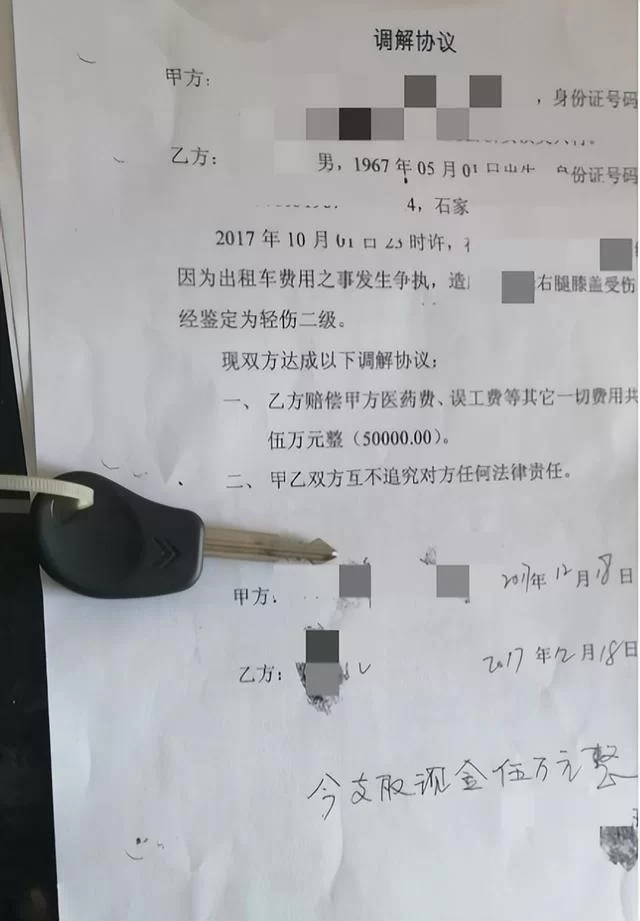 调解协议
甲方：
，身份证号码
乙方： 男，1967年05月01日出生 身份证号码
4，石家
2017年10月01日23时许，
因为出租车费用之事发生争执，造 右腿膝盖受伤
经鉴定为轻伤二级。
现双方达成以下调解协议：
一、乙方赔偿甲方医药费、误工费等其它一切费用共
伍万元整（50000.00）。
二、甲乙双方互不追究对方任何法律责任。
甲方： 2017年12月18日
乙方： 2017年12月18日
今支取现金伍万元整